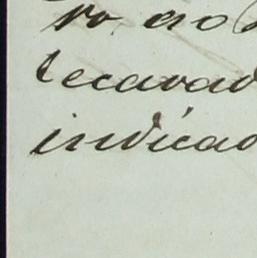 ro ao
tecavad
indicad